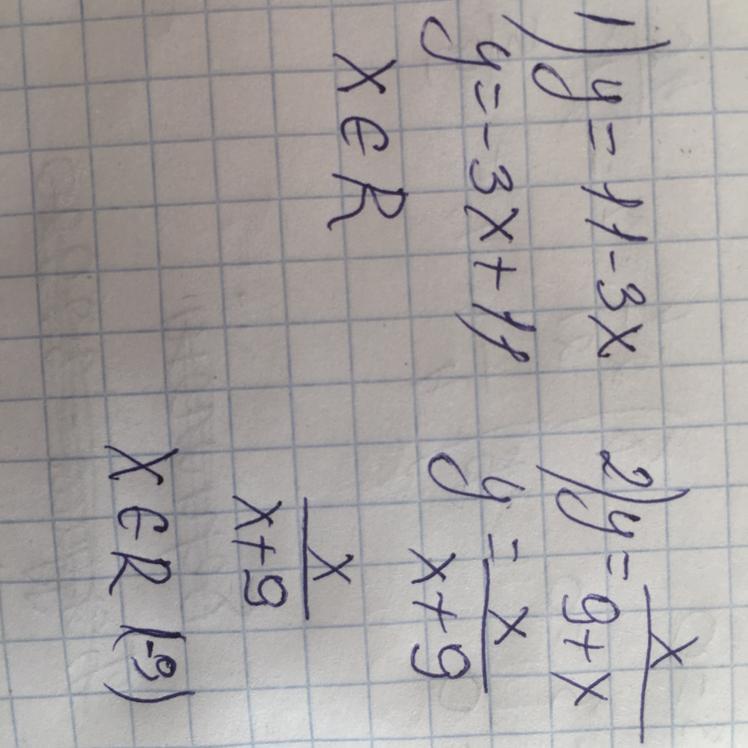 1) y = 11 - 3x
y = -3x + 11
x ∈ R
2) y = x/(9 + x)
y = x/(x + 9)
x/(x + 9)
x ∈ R \ (-9)